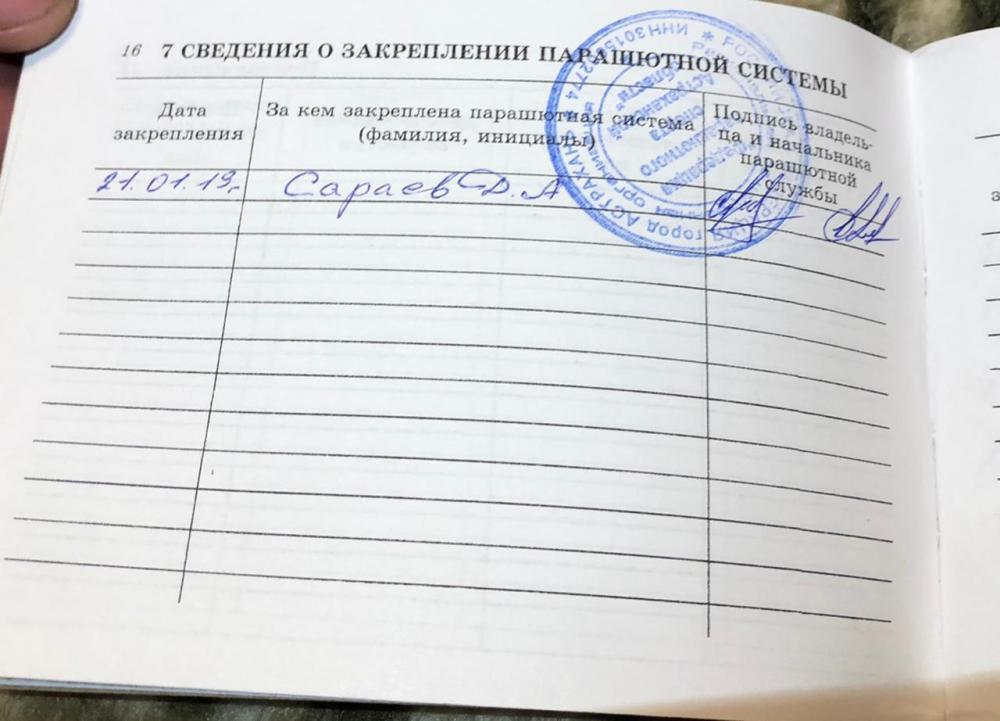 16 7 СВЕДЕНИЯ О ЗАКРЕПЛЕНИИ ПАРАШЮТНОЙ СИСТЕМЫ
Дата
закрепления
За кем закреплена парашютная система
(фамилия, инициалы)
Подпись владель-
ца и начальника
парашютной
службы
21.01.19г.
Сараев Д.А
город АСТРАХАНЬ
Астраханской
области